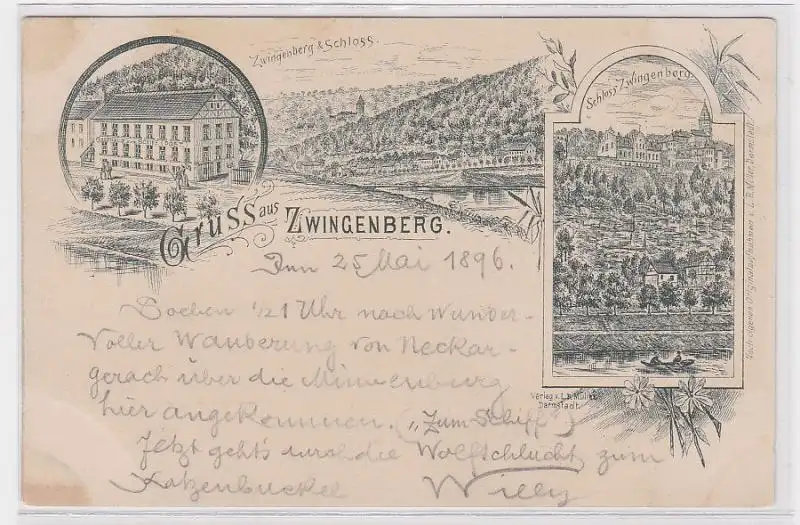 Zwingenberg & Schloss.
Schloss Zwingenberg
Gruss aus Zwingenberg.
Den 25 Mai 1896.
Soeben 1/21 Uhr nach wunder-
voller Wanderung von Neckar-
gerach über die Minneburg
hier angekommen. („Zum Schiff“)
Jetzt geht's durch die Wolfschlucht zum
Katzenbuckel Willy
Verlag v. L.B. Müller
Darmstadt.
Nach eigenen Originalaufnahmen v. L.B. Müller, Darmstadt.